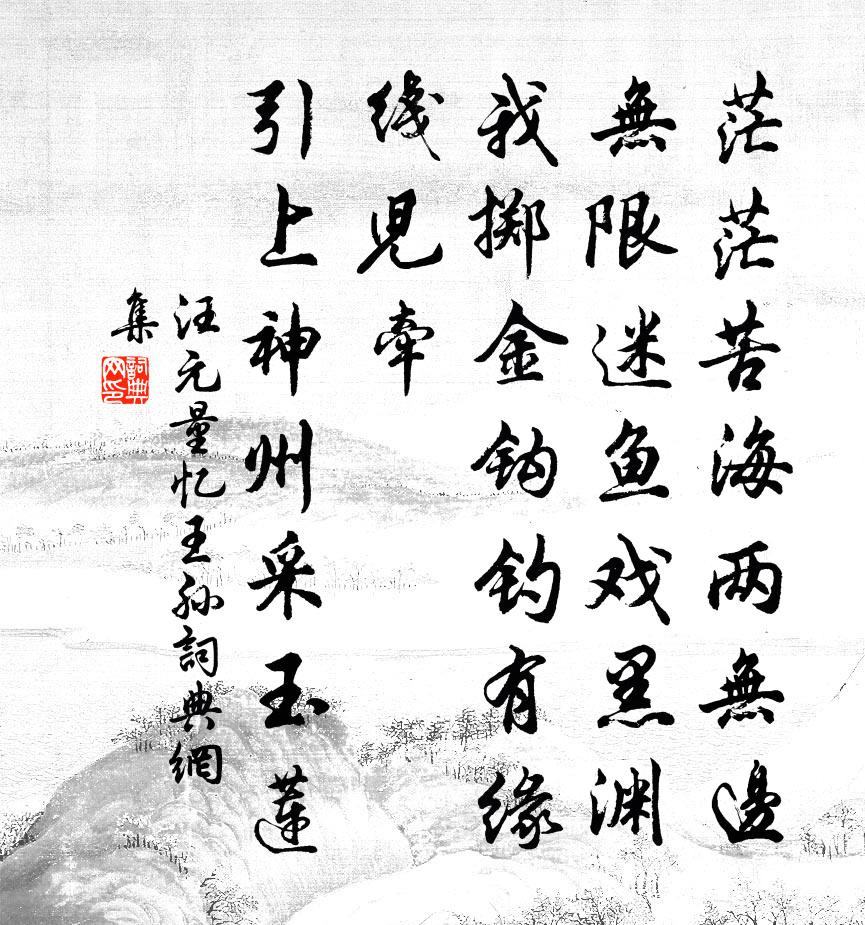 茫茫苦海两無邊
無限迷鱼戏黑渊
我掷金钩钓有缘
线児牵
引上神州采玉莲
汪元量忆王孙詞典網
集
詞典
网印